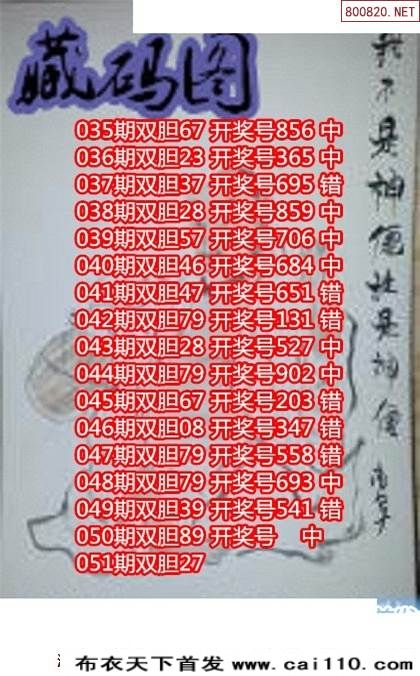 800820.NET
藏码图
我不是神便法是神便
035期双胆67 开奖号856 中
036期双胆23 开奖号365 中
037期双胆37 开奖号695 错
038期双胆28 开奖号859 中
039期双胆57 开奖号706 中
040期双胆46 开奖号684 中
041期双胆47 开奖号651 错
042期双胆79 开奖号131 错
043期双胆28 开奖号527 中
044期双胆79 开奖号902 中
045期双胆67 开奖号203 错
046期双胆08 开奖号347 错
047期双胆79 开奖号558 错
048期双胆79 开奖号693 中
049期双胆39 开奖号541 错
050期双胆89 开奖号 中
051期双胆27
布衣天下首发 www.cai110.com